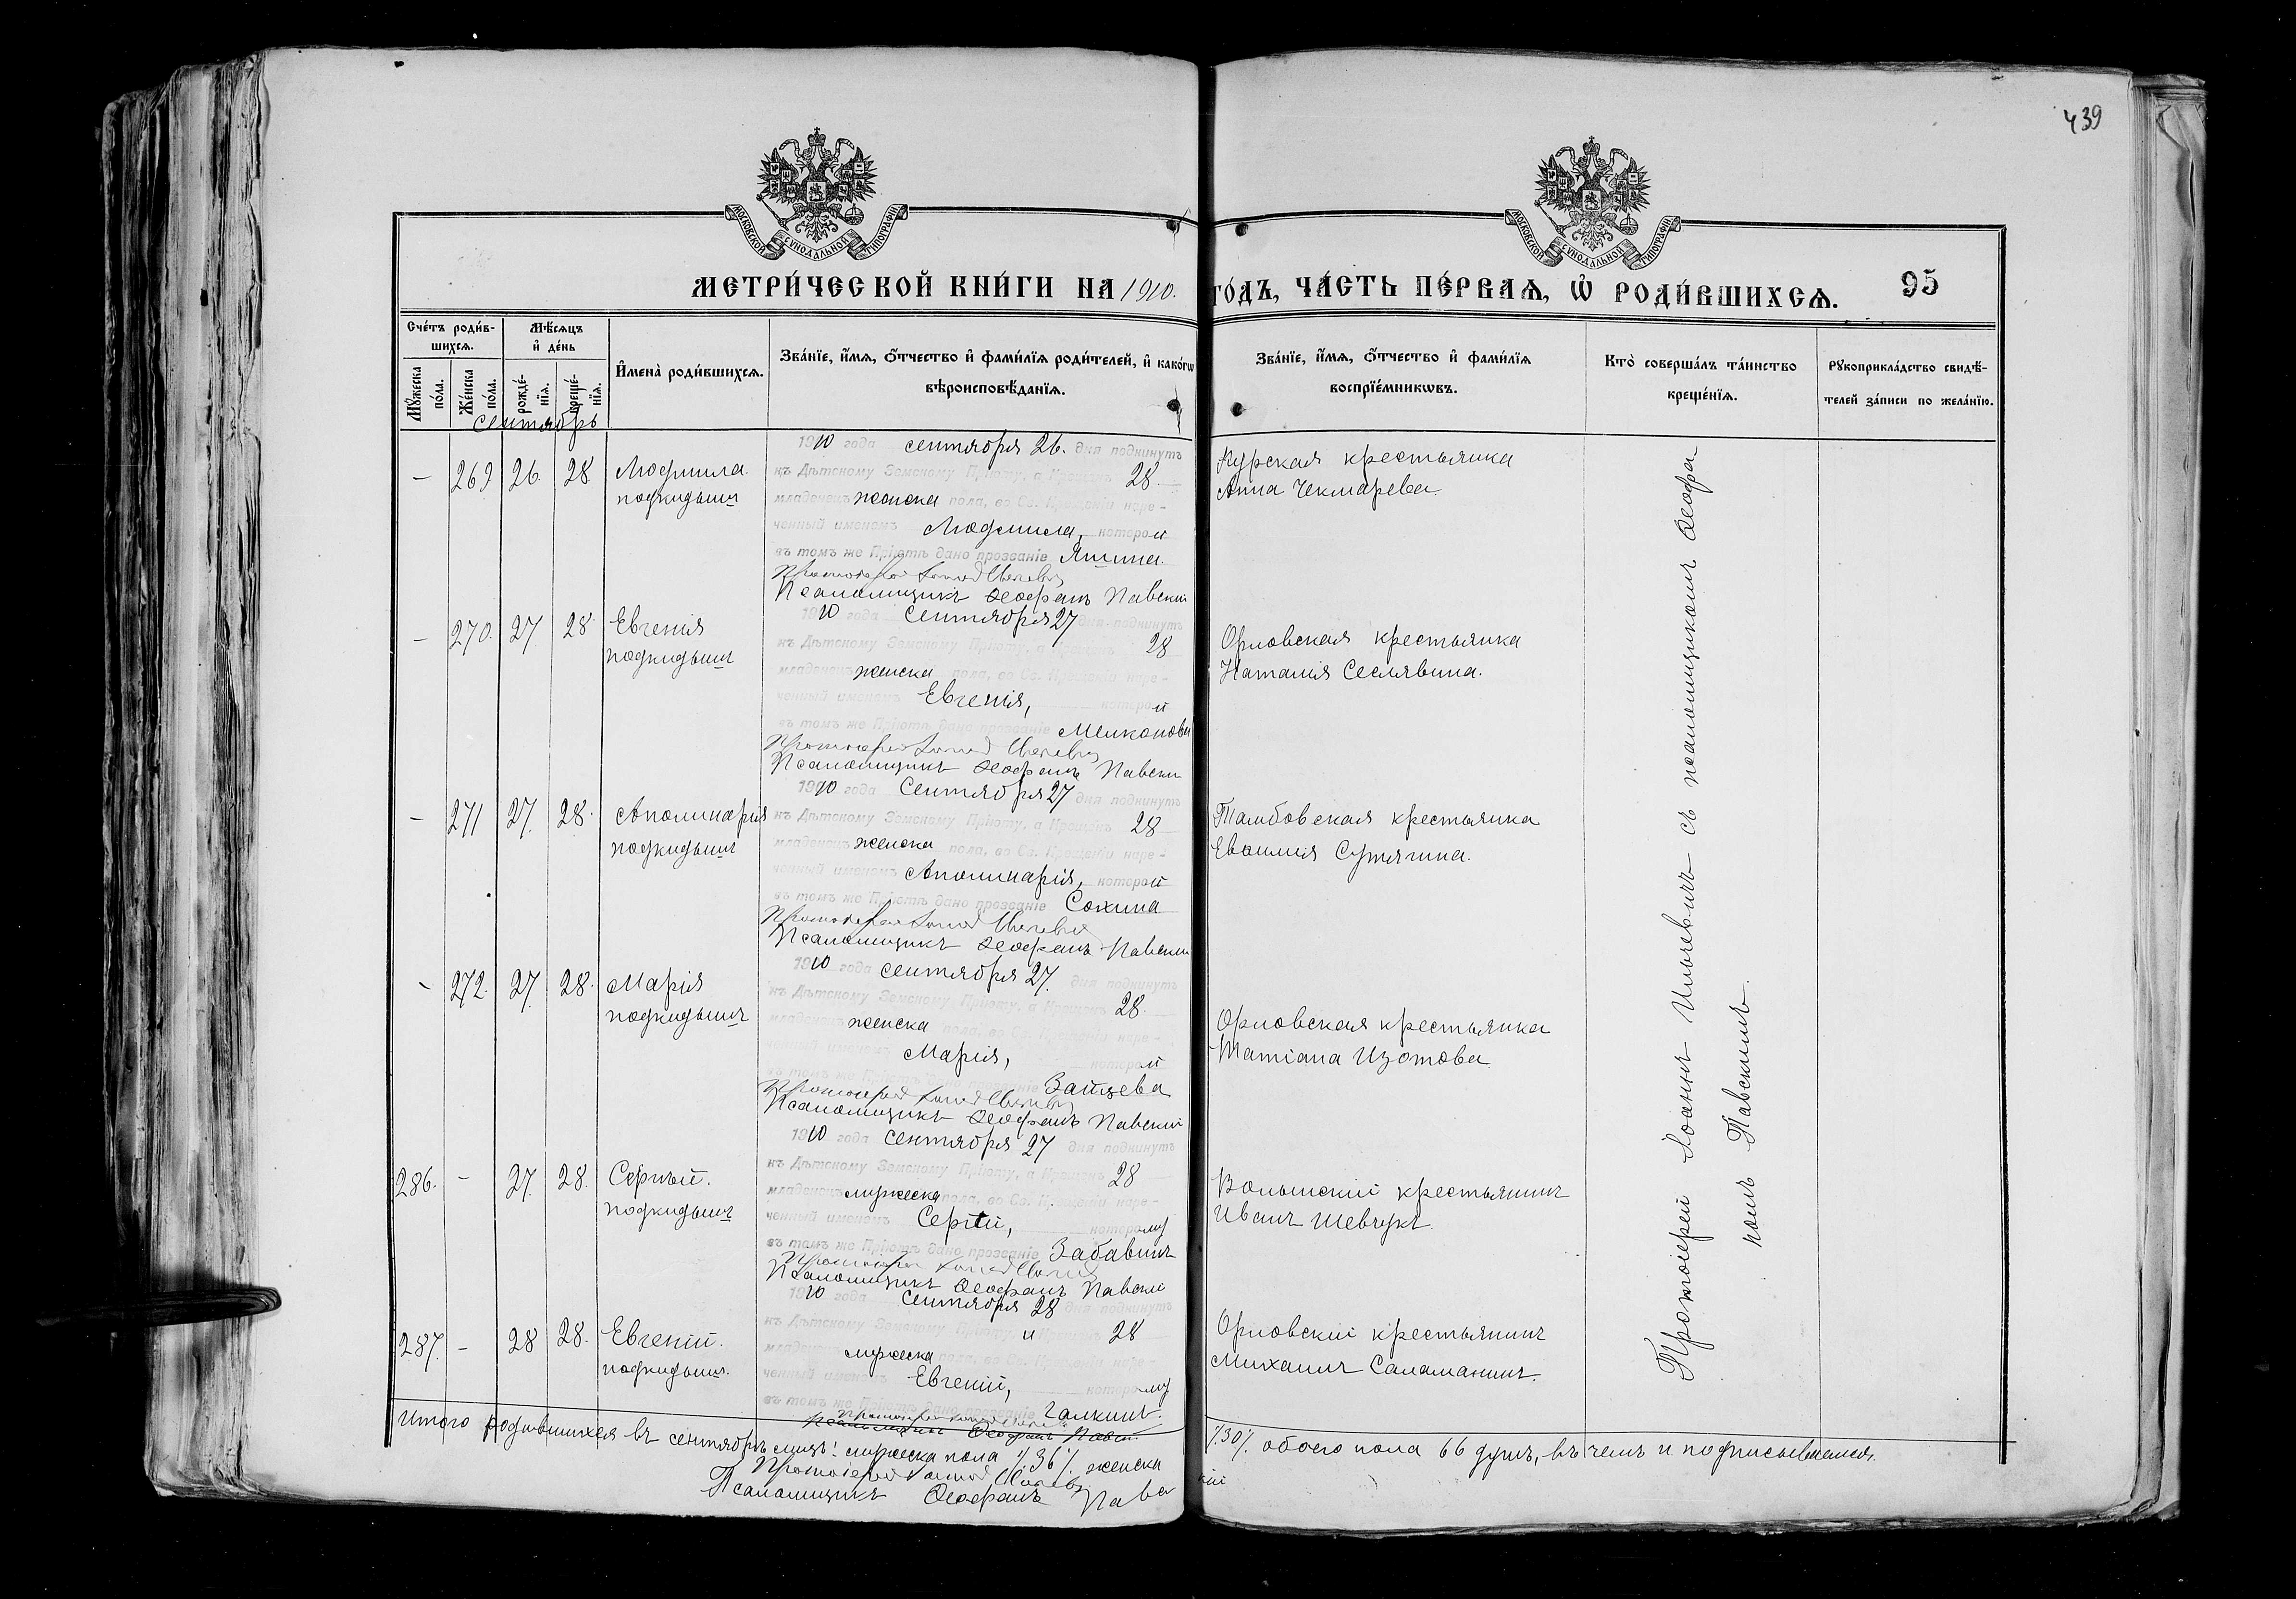 439
МОСКОВСКОЙ СѴНОДАЛЬНОЙ ТИПОГРАФІИ
МОСКОВСКОЙ СѴНОДАЛЬНОЙ ТИПОГРАФІИ
МЕТРИ́ЧЕСКОЙ КНИ́ГИ НА 1910. ГО́ДЪ, ЧА́СТЬ ПЕ́РВАѦ, Ѡ҆ РОДИ́ВШИХСѦ. 95
Сче́тъ роди́в-
шихсѧ.
Мꙋ́жеска
по́ла.
Же́нска
по́ла.
Мѣ́сѧцъ
и҆ де́нь
рожде́-
нїѧ.
креще́-
нїѧ.
И҆мена̀ роди́вшихсѧ.
Зва́нїе, и҆́мѧ, ѻ҆́тчество и҆ фами́лїѧ роди́телей, и҆ како́гѡ
вѣроисповѣ́данїѧ.
Зва́нїе, и҆́мѧ, ѻ҆́тчество и҆ фами́лїѧ
воспрїе́мникѡвъ.
Кто̀ соверша́лъ та́инство
креще́нїѧ.
Рꙋкоприкла́дство свидѣ́-
телей за́писи по жела́нїю.
Сентябрь
– 269 26. 28 Людмила
подкидышъ
1910 года сентября 26. дня подкинутъ
къ Дѣтскому Земскому Пріюту, а Крещенъ 28.
младенецъ женска пола, во Св. Крещеніи наре-
ченный именемъ Людмила, которой
въ томъ же Пріютѣ дано прозваніе Яшина.
Протоіерей Іоаннъ
Псаломщикъ Ѳеофанъ Павскій
Курская крестьянка
Анна Чекмарева.
– 270. 27. 28. Евгенія
подкидышъ
1910 года Сентября 27 дня подкинутъ
къ Дѣтскому Земскому Пріюту, а Крещенъ 28
младенецъ женска пола, во Св. Крещеніи наре-
ченный именемъ Евгенія, которой
въ томъ же Пріютѣ дано прозваніе
Протоіерей Іоаннъ
Псаломщикъ Ѳеофанъ Павскій
Орловская крестьянка
Наталія Сеслявина.
– 271 27. 28. Аполинарія
подкидышъ
1910 года Сентября 27 дня подкинутъ
къ Дѣтскому Земскому Пріюту, а Крещенъ 28
младенецъ женска пола, во Св. Крещеніи наре-
ченный именемъ Аполинарія, которой
въ томъ же Пріютѣ дано прозваніе Сохина
Протоіерей Іоаннъ
Псаломщикъ Ѳеофанъ Павскій
Тамбовская крестьянка
Евѳимія Сутягина.
– 272. 27. 28. Марія
подкидышъ
1910 года сентября 27. дня подкинутъ
къ Дѣтскому Земскому Пріюту, а Крещенъ 28.
младенецъ женска пола, во Св. Крещеніи наре-
ченный именемъ Марія, которой
въ томъ же Пріютѣ дано прозваніе Зайцева
Протоіерей Іоаннъ
Псаломщикъ Ѳеофанъ Павскій
Орловская крестьянка
Татіана Изотова
286. – 27. 28. Сергѣй.
подкидышъ
1910 года сентября 27 дня подкинутъ
къ Дѣтскому Земскому Пріюту, а Крещенъ 28
младенецъ мужеска пола, во Св. Крещеніи наре-
ченный именемъ Сергій, которому
въ томъ же Пріютѣ дано прозваніе Забавинъ
Протоіерей Іоаннъ
Псаломщикъ Ѳеофанъ Павскій
Волынскій крестьянинъ
Иванъ Шевчукъ.
287. – 28 28. Евгеній.
подкидышъ.
1910 года Сентября 28 дня подкинутъ
къ Дѣтскому Земскому Пріюту и 28
младенецъ мужеска пола, во Св. Крещеніи наре-
ченный именемъ Евгеній, которому
въ томъ же Пріютѣ дано прозваніе Галкинъ.
Псаломщикъ Ѳеофанъ Павск
Орловскій крестьянинъ
Михаилъ Саламакинъ.
Протоіерей Іоаннъ Ильичевъ съ псаломщикомъ Ѳеофа
номъ Павскимъ.
Итого родившихся въ сентябрѣ мцѣ: мужеска пола "/.36"/. женска
"/.30"/. обоего пола 66 душъ, въ чемъ и подписываемся.
Протоіерей Іоаннъ
Псаломщикъ Ѳеофанъ Павскій